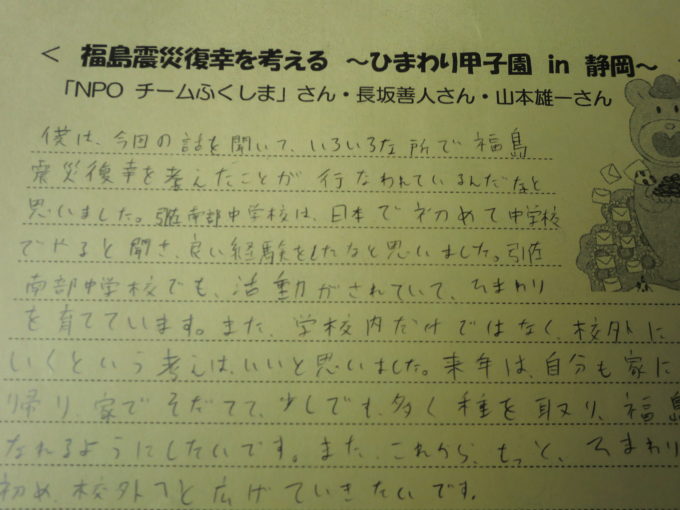 < 福島震災復幸を考える ～ひまわり甲子園 in 静岡～
「NPO チームふくしま」さん・長坂善人さん・山本雄一さん
僕は、今回の話を聞いて、いろいろな所で福島
震災復幸を考えたことが行なわれているんだなと
思いました。引佐南部中学校は、日本で初めて中学校
でやると聞き、良い経験をしたなと思いました。引佐
南部中学校でも、活動がされていて、ひまわり
を育てています。また、学校内だけではなく、校外に
いくという考えは、いいと思いました。来年は、自分も家に
帰り、家でそだてて、少しでも、多く種を取り、福島
なれるようにしたいです。また、これから、もっと、ひまわり
初め、校外へと広げていきたいです。